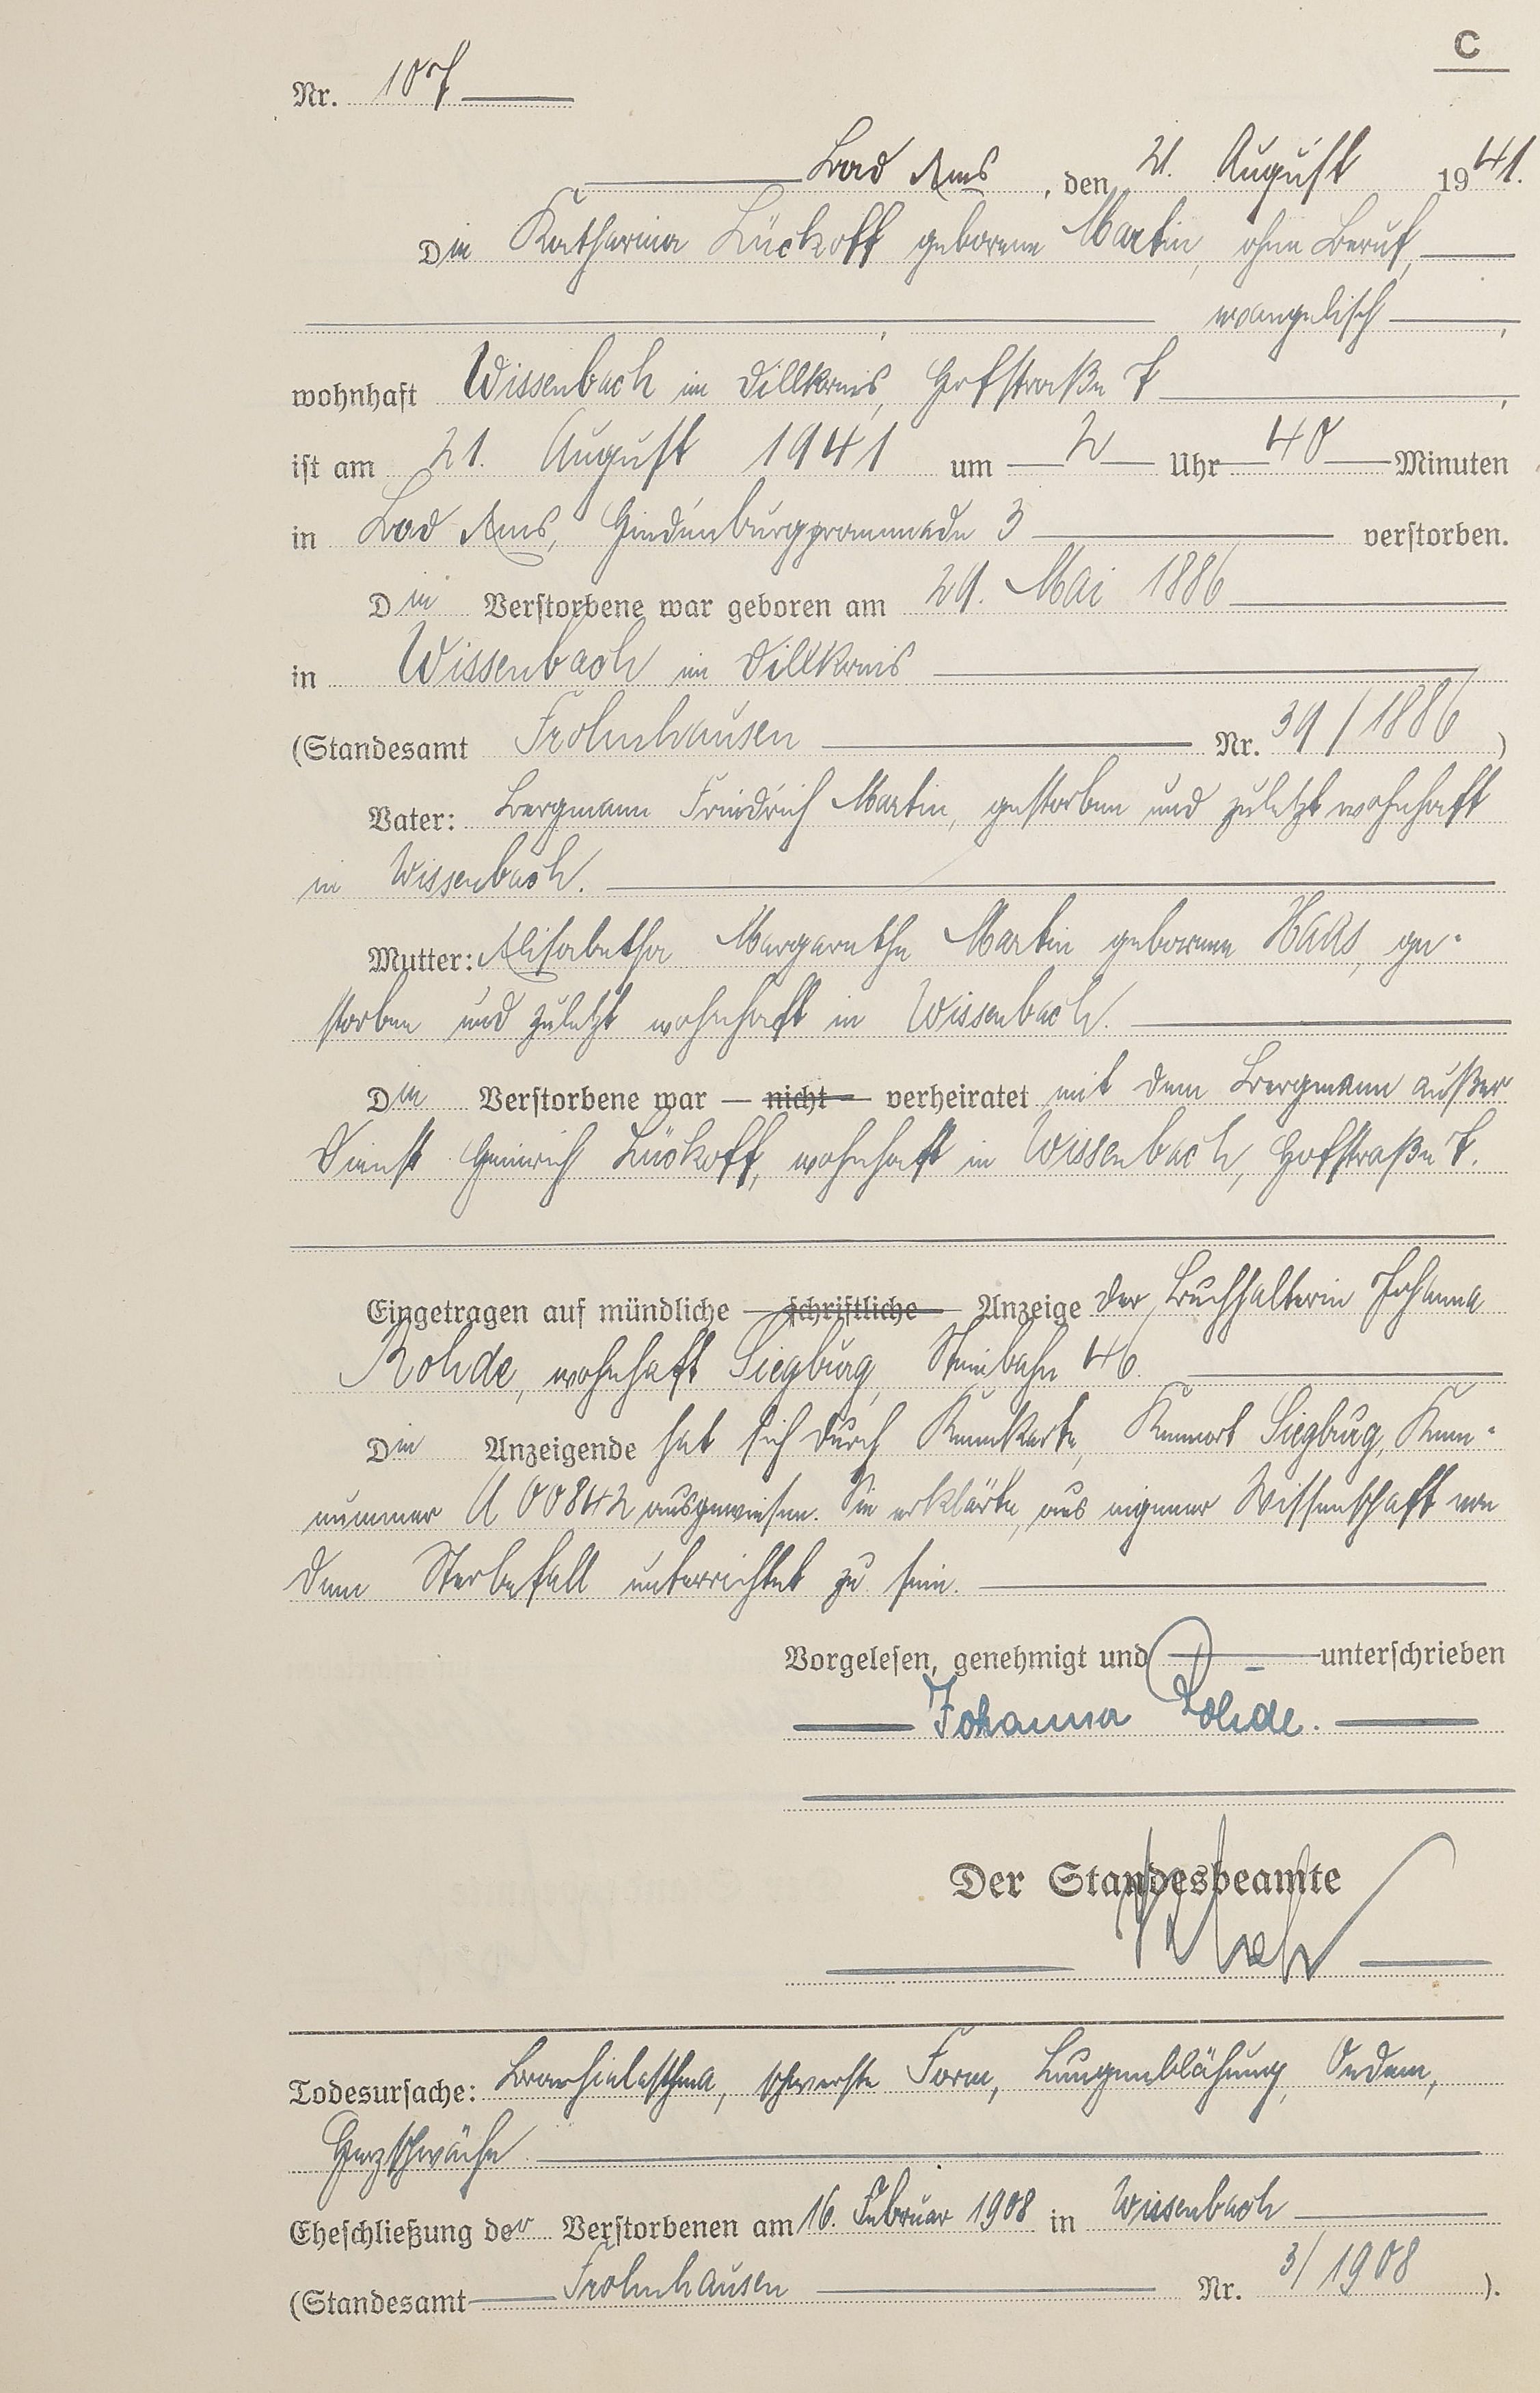 C
Nr. 107
Bad Ems, den 21. August 1941.
Die Katharina Lückoff geborene Martin, ohne Beruf,
evangelisch,
wohnhaft Wissenbach im Dillkreis, Hofstraße 7,
ist am 21. August 1941 um 2 Uhr 40 Minuten
in Bad Ems, Hindenburgpromenade 3 verstorben.
Die Verstorbene war geboren am 29. Mai 1886
in Wissenbach im Dillkreis
(Standesamt Frohnhausen Nr. 39/1886)
Vater: Bergmann Friedrich Martin, gestorben und zuletzt wohnhaft
in Wissenbach.
Mutter: Elisabetha Margarethe Martin geborene Haas, ge-
storben und zuletzt wohnhaft in Wissenbach.
Die Verstorbene war — nicht — verheiratet mit dem Bergmann außer
Dienst Heinrich Lückoff, wohnhaft in Wissenbach, Hofstraße 7.
Eingetragen auf mündliche — schriftliche — Anzeige der Buchhalterin Johanna
Rohde, wohnhaft Siegburg, Steinbahn 46.
Die Anzeigende hat sich durch Kennkarte, Kennort Siegburg, Kenn-
nummer A 00842 ausgewiesen. Sie erklärte, aus eigener Wissenschaft von
dem Sterbefall unterrichtet zu sein.
Vorgelesen, genehmigt und unterschrieben
Johanna Rohde.
Der Standesbeamte
Todesursache: Bronchialasthma, schwerste Form, Lungenblähung, Oedem,
Herzschwäche
Eheschließung der Verstorbenen am 16. Februar 1908 in Wissenbach
(Standesamt Frohnhausen Nr. 3/1908).